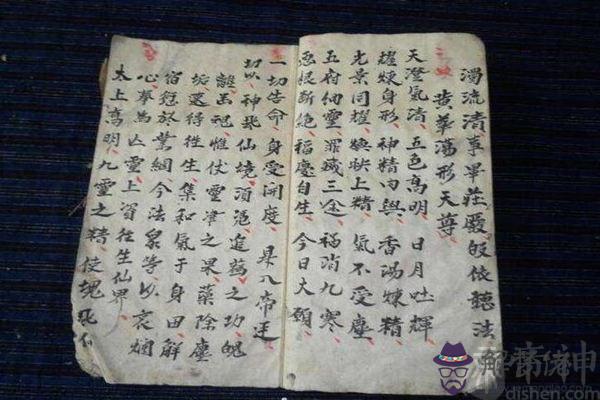 濁流清事畢莊嚴皈依聽法
黃華蕩形天尊
天澄氣清 五色高明 日月吐輝
耀煉身形 神精內與 香湯煉精
光景同耀 煥映上精 氣不受塵
五府納靈 罪滅三塗 禍消九寒
惡根斷絕 福慶自生 今日大願
一切告命 身受開度 是八帝廷
切以 神飛仙境 須憑進薦之功 魄
離玉冠 惟仗靈津之果 藥除塵
垢還得往生 集和氣于身田 解
宿愆於業網 今法眾等以哀悃
心奉為亡靈上資往生仙界
太上高明 九靈之精 使魄飛
dishen.com